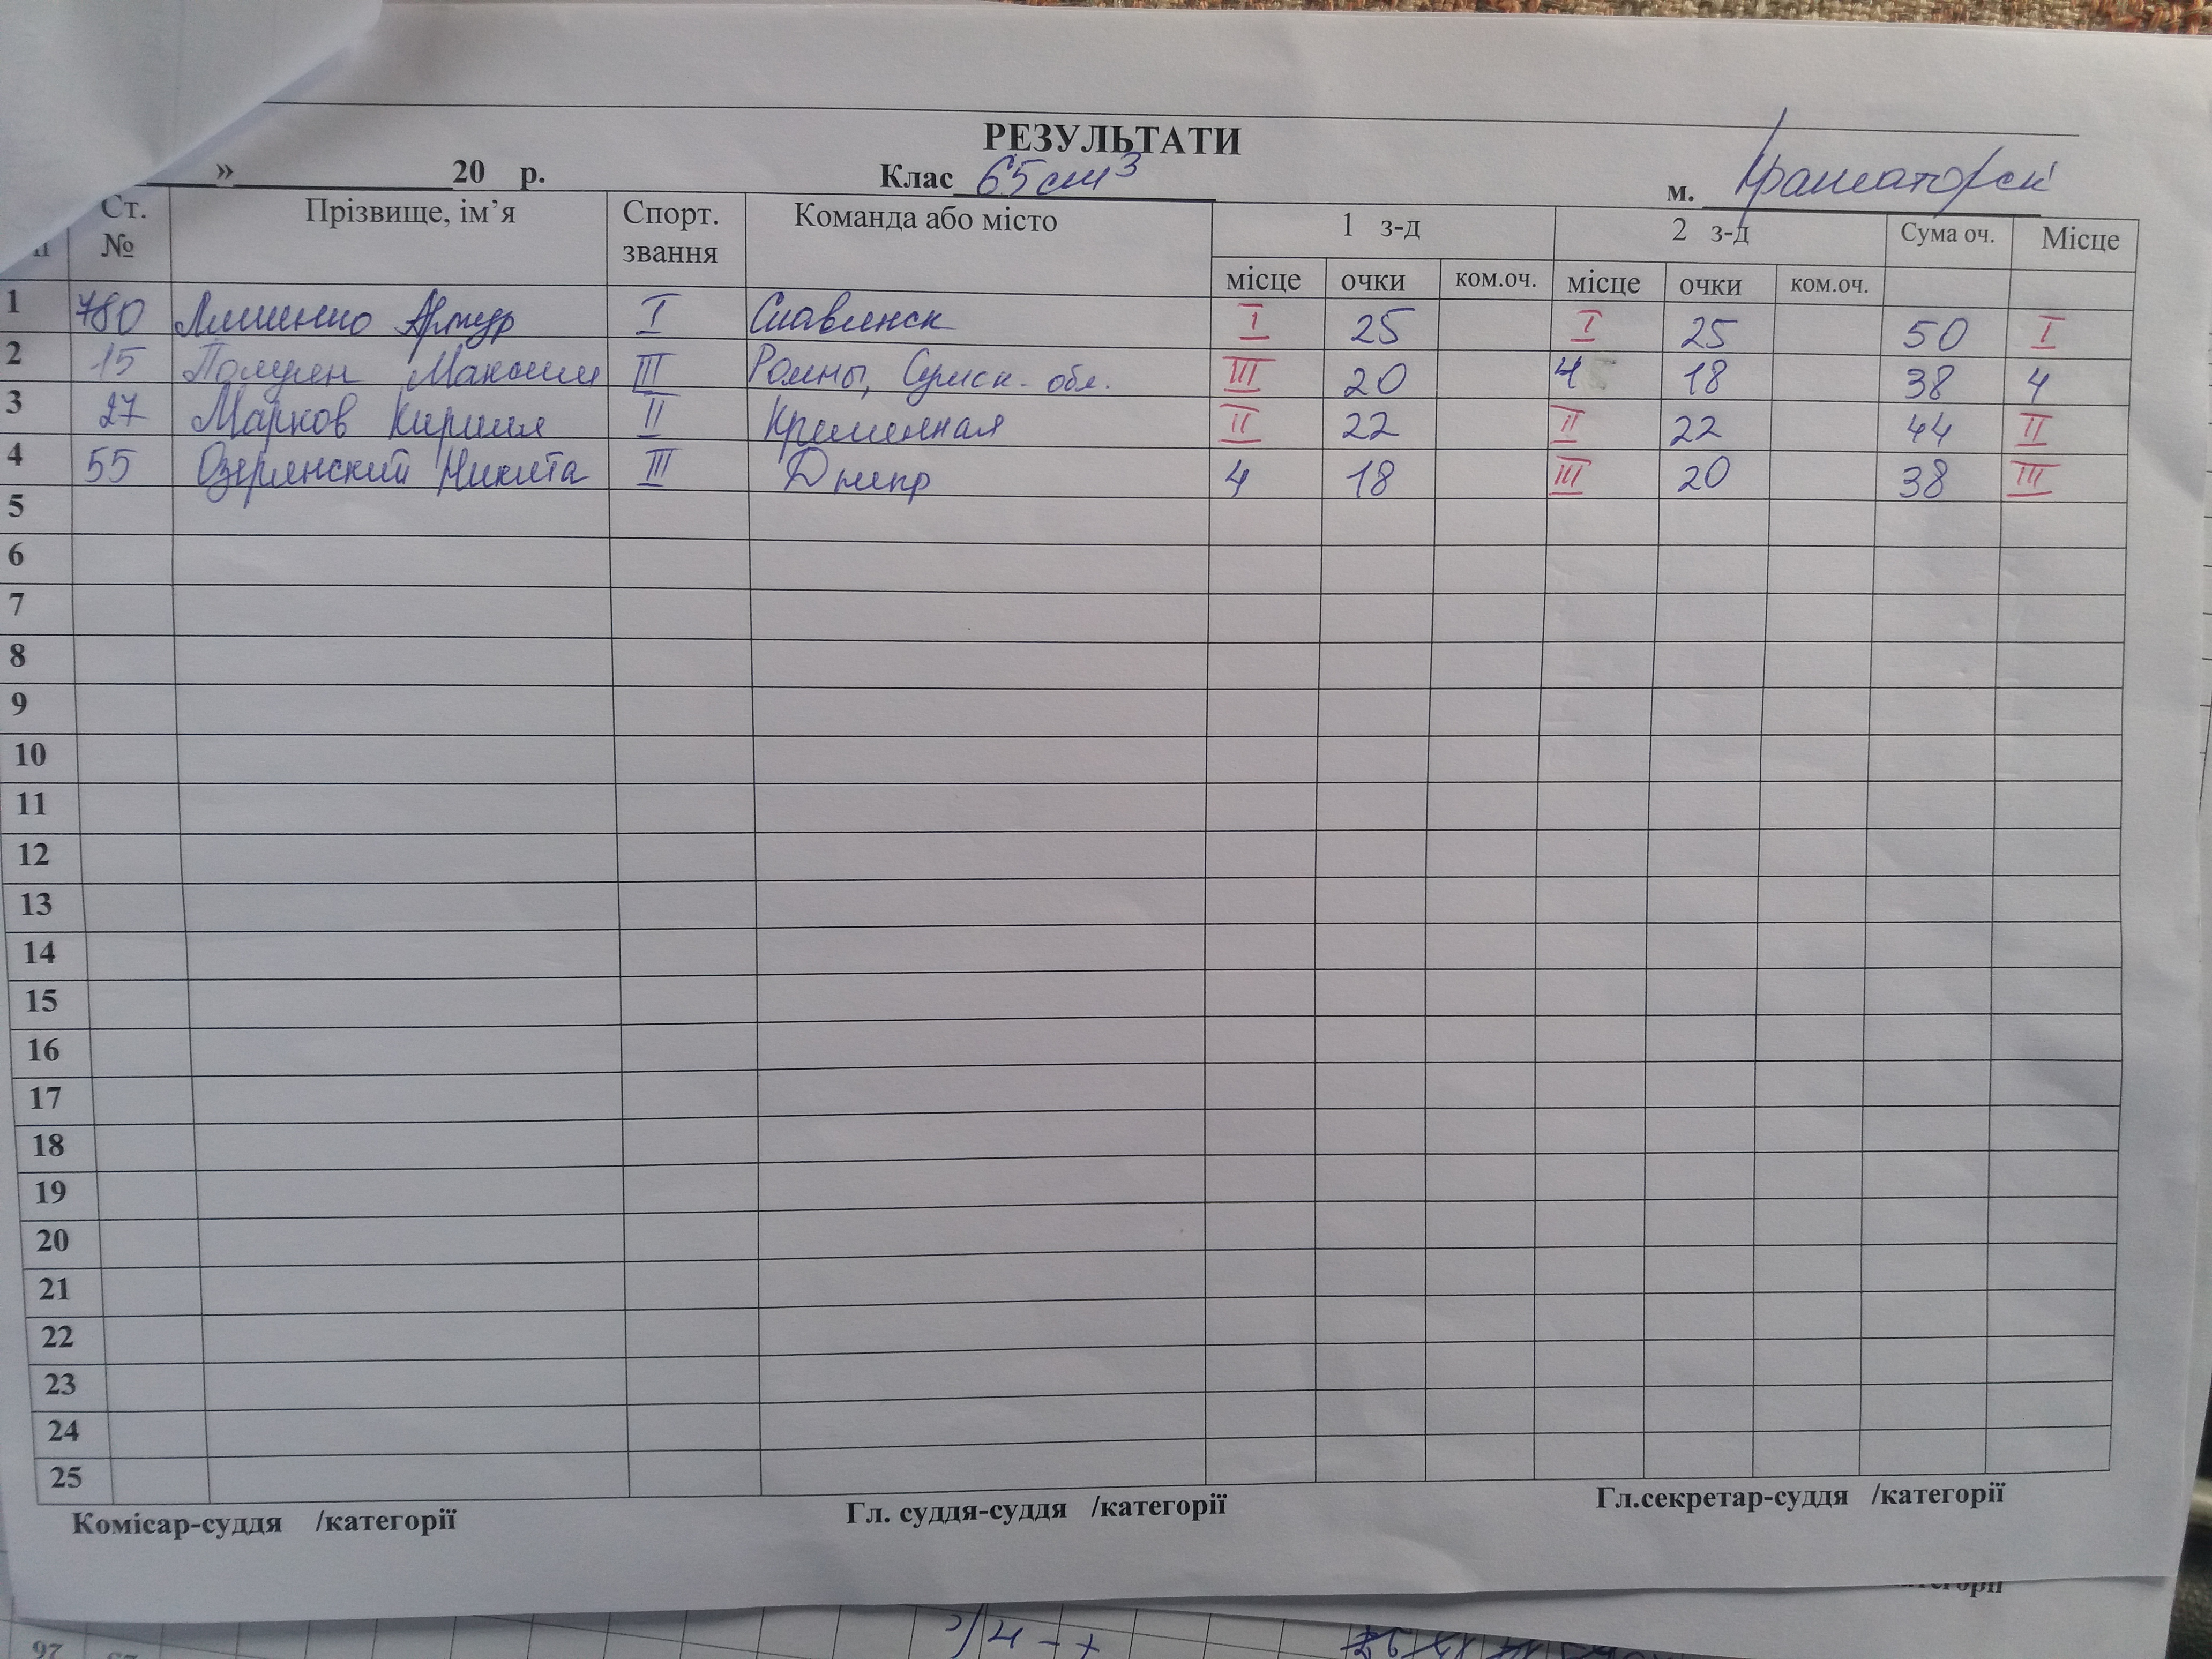 РЕЗУЛЬТАТИ
» 20 р. Клас 65 см³ м. Краматорск
Ст. № Прізвище, ім’я Спорт. звання Команда або місто 1 з-д 2 з-д Сума оч. Місце
місце очки ком.оч. місце очки ком.оч.
1 780 Артур I Славянск I 25 I 25 50 I
2 15 Максим III Ромны, Сумск. обл. III 20 4 18 38 4
3 27 Марков Кирилл II Кременная II 22 II 22 44 II
4 55 Озерянский Никита III Днепр 4 18 III 20 38 III
5
6
7
8
9
10
11
12
13
14
15
16
17
18
19
20
21
22
23
24
25
Комісар-суддя /категорії Гл. суддя-суддя /категорії Гл.секретар-суддя /категорії
97